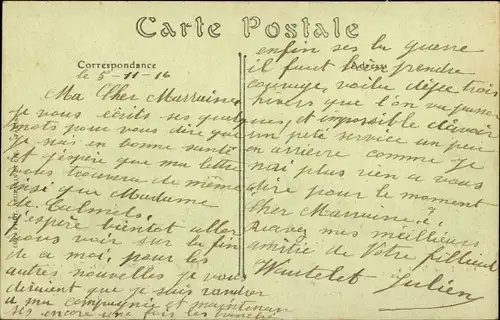 Carte Postale
Correspondance
le 5-11-16
Ma Cher Marraine
je vous écrits ses quelques
mots pour vous dire que
je suis en bonne santé
et j'espère que ma lettre
vous trouveras de même
insi que Madame
de
j'espère bientot aller
vous voir sur la fin
de a moi, pour les
autres nouvelles je vous
dirent que je suis randre
a ma compagnie et maintenan
ses encore une fois les
enfin ses la guerre
il faut bien prendre
courage, voilu déja trois
hivers que l'on vu passer
et impossible d'avoir
un peté service un peu
en arrière comme je
nai plus rien a vous
dire pour le moment
Cher Marraine
Recevez mes meilleurs
amitié de Votre filleul
Wautelet Julien